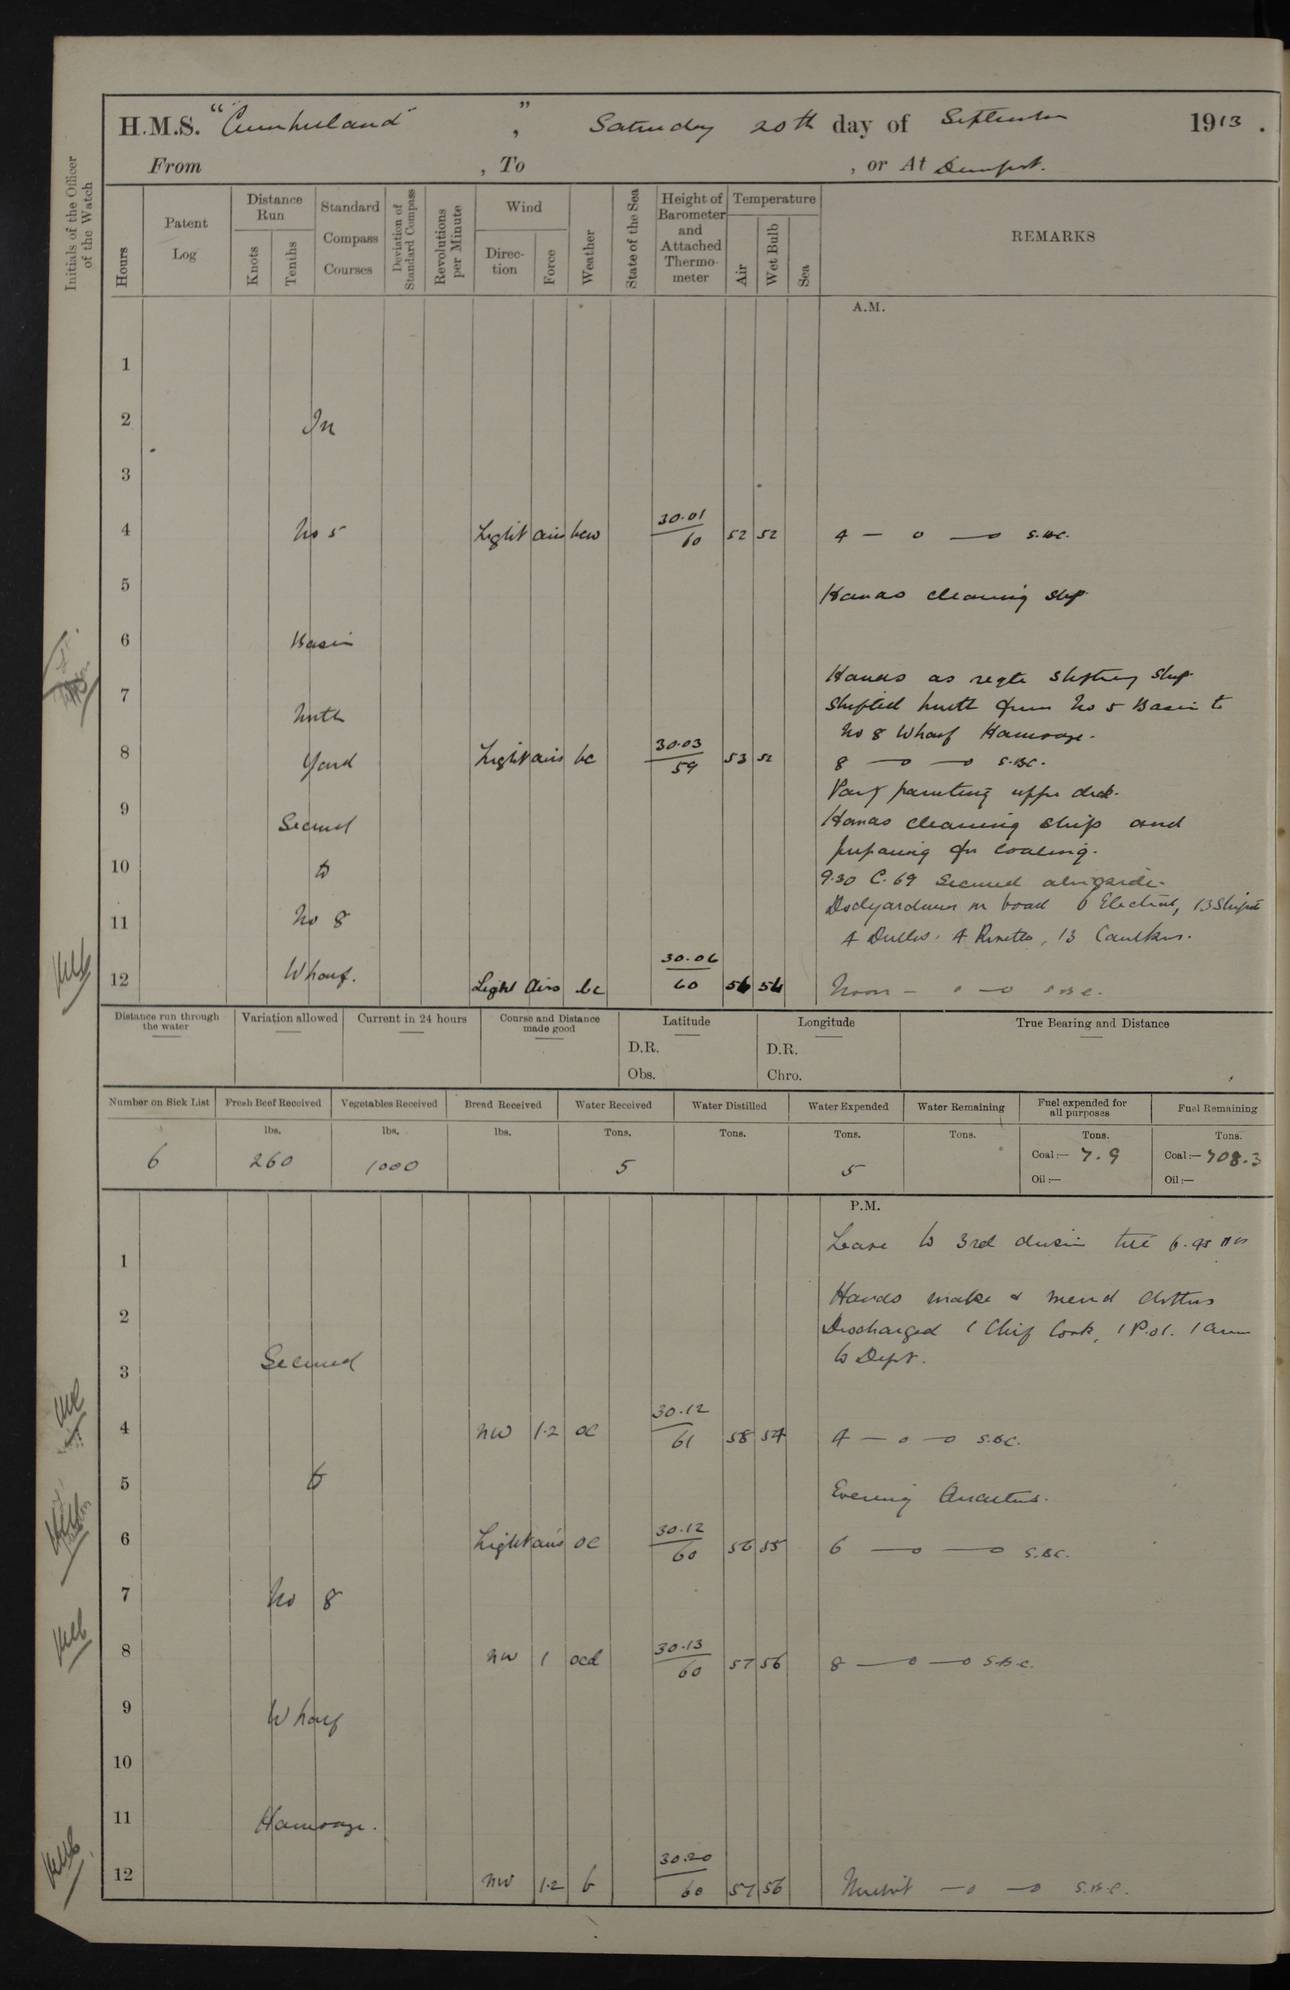 H.M.S. "Cumberland", Saturday 20th day of September 1913.
From , To , or At Devonport.
Initials of the Officer of the Watch
Hours
Patent Log
Distance Run
Knots
Tenths
Standard Compass Courses
Deviation of Standard Compass
Revolutions per Minute
Wind
Direction
Force
Weather
State of the Sea
Height of Barometer and Attached Thermometer
Temperature
Air
Wet Bulb
Sea
REMARKS
A.M.
1
2 In
3
4 No 5 Light airs bcw 30.01 60 52 52 4 — o —o S.B.C.
5 Hands cleaning ship
6 Basin
Hands as reqte shifting ship
7 Shifted berth from No 5 Basin to
North No 8 Wharf Hamoaze.
8 Yard Light airs bc 30.03 59 53 52 8 —o —o S.B.C.
Party painting upper deck.
9 Secured Hands cleaning ship and
preparing for coaling.
10 to 9.30 C.69 Secured alongside.
11 No 8 Dockyardmen on board 6 Elect, 13 Shipts
4 Drillers. 4 Riveters, 13 Caulkers.
12 Wharf. Light Airs bc 30.06 60 56 54 Noon — o —o S.B.C.
Distance run through the water
Variation allowed
Current in 24 hours
Course and Distance made good
Latitude
D.R.
Obs.
Longitude
D.R.
Chro.
True Bearing and Distance
Number on Sick List 6
Fresh Beef Received lbs. 260
Vegetables Received lbs. 1000
Bread Received lbs.
Water Received Tons. 5
Water Distilled Tons.
Water Expended Tons. 5
Water Remaining Tons.
Fuel expended for all purposes Tons. Coal:— 7.9 Oil:—
Fuel Remaining Tons. Coal:— 708.3 Oil:—
P.M.
1 Leave to 3rd division till 6.45
Hands make & mend clothes
2 Discharged 1 Chief Cook, 1 P.O.
3 Secured to Depôt.
4 NW 1.2 oc 30.12 61 58 54 4 — o —o S.B.C.
5 to Evening Quarters.
6 Light airs oc 30.12 60 56 55 6 —o —o S.B.C.
7 No 8
8 NW 1 ocd 30.13 60 57 56 8 —o —o S.B.C.
9 Wharf
10
11 Hamoaze.
12 NW 1.2 b 30.20 60 57 56 Midnight —o —o S.B.C.